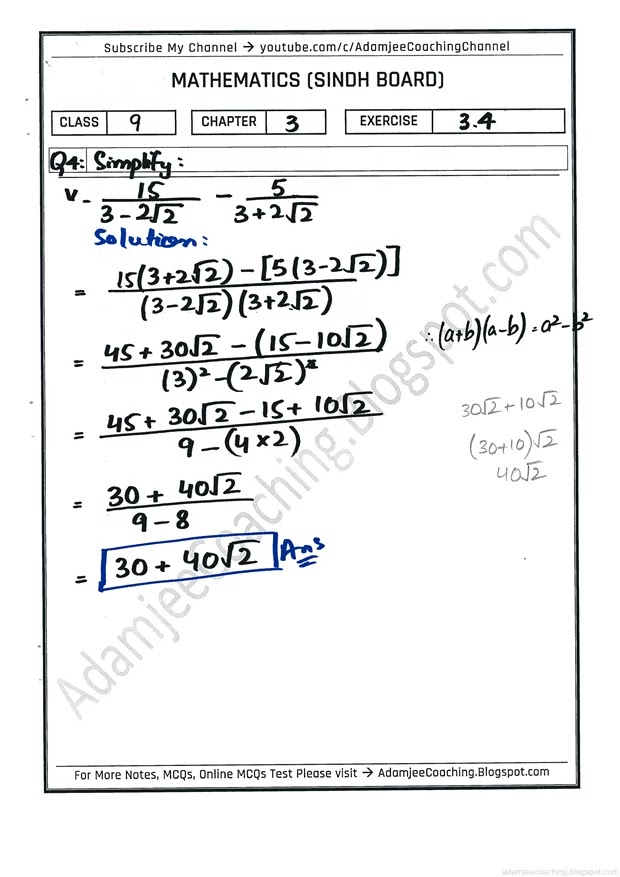 Subscribe My Channel → youtube.com/c/AdamjeeCoachingChannel
MATHEMATICS (SINDH BOARD)
CLASS 9 CHAPTER 3 EXERCISE 3.4
Q4: Simplify:
v- 15/(3-2√2) - 5/(3+2√2)
Solution:
= 15(3+2√2) - [5(3-2√2)] / (3-2√2)(3+2√2)
= 45+30√2 - (15-10√2) / (3)² - (2√2)² ∴ (a+b)(a-b) = a²-b²
= 45+30√2-15+10√2 / 9-(4×2) 30√2+10√2
(30+10)√2
40√2
= 30+40√2 / 9-8
= 30+40√2 Ans
AdamjeeCoaching.blogspot.com
For More Notes, MCQs, Online MCQs Test Please visit → AdamjeeCoaching.Blogspot.com
adamjeecoaching.blogspot.com